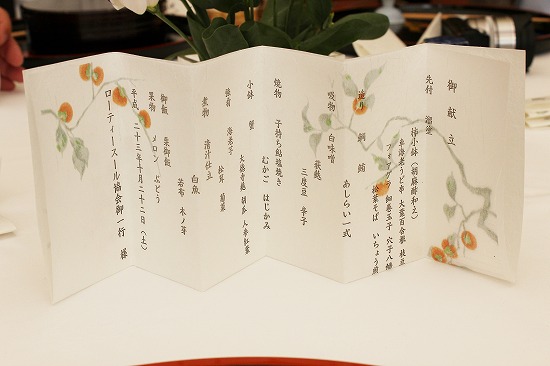 御献立
先付 溜塗
柿小鉢（胡麻酢和え）
車海老うど串 大葉百合根 枝豆
フォアグラ 細巻玉子 穴子八幡
松葉そば いちょう
造り 鯛 鮪
あしらい一式
吸物 白味噌
萩麩
三度豆 辛子
焼物 子持ち鮎塩焼き
むかご はじかみ
小鉢 蟹
大徳寺麩 胡瓜 人参紅葉
海老芋
松茸 菊菜
煮物 清汁仕立
白魚
若布 木ノ芽
御飯 栗御飯
果物 メロン ぶどう
平成二十三年十月二十二日（土）
ローティースール協会御一行 様